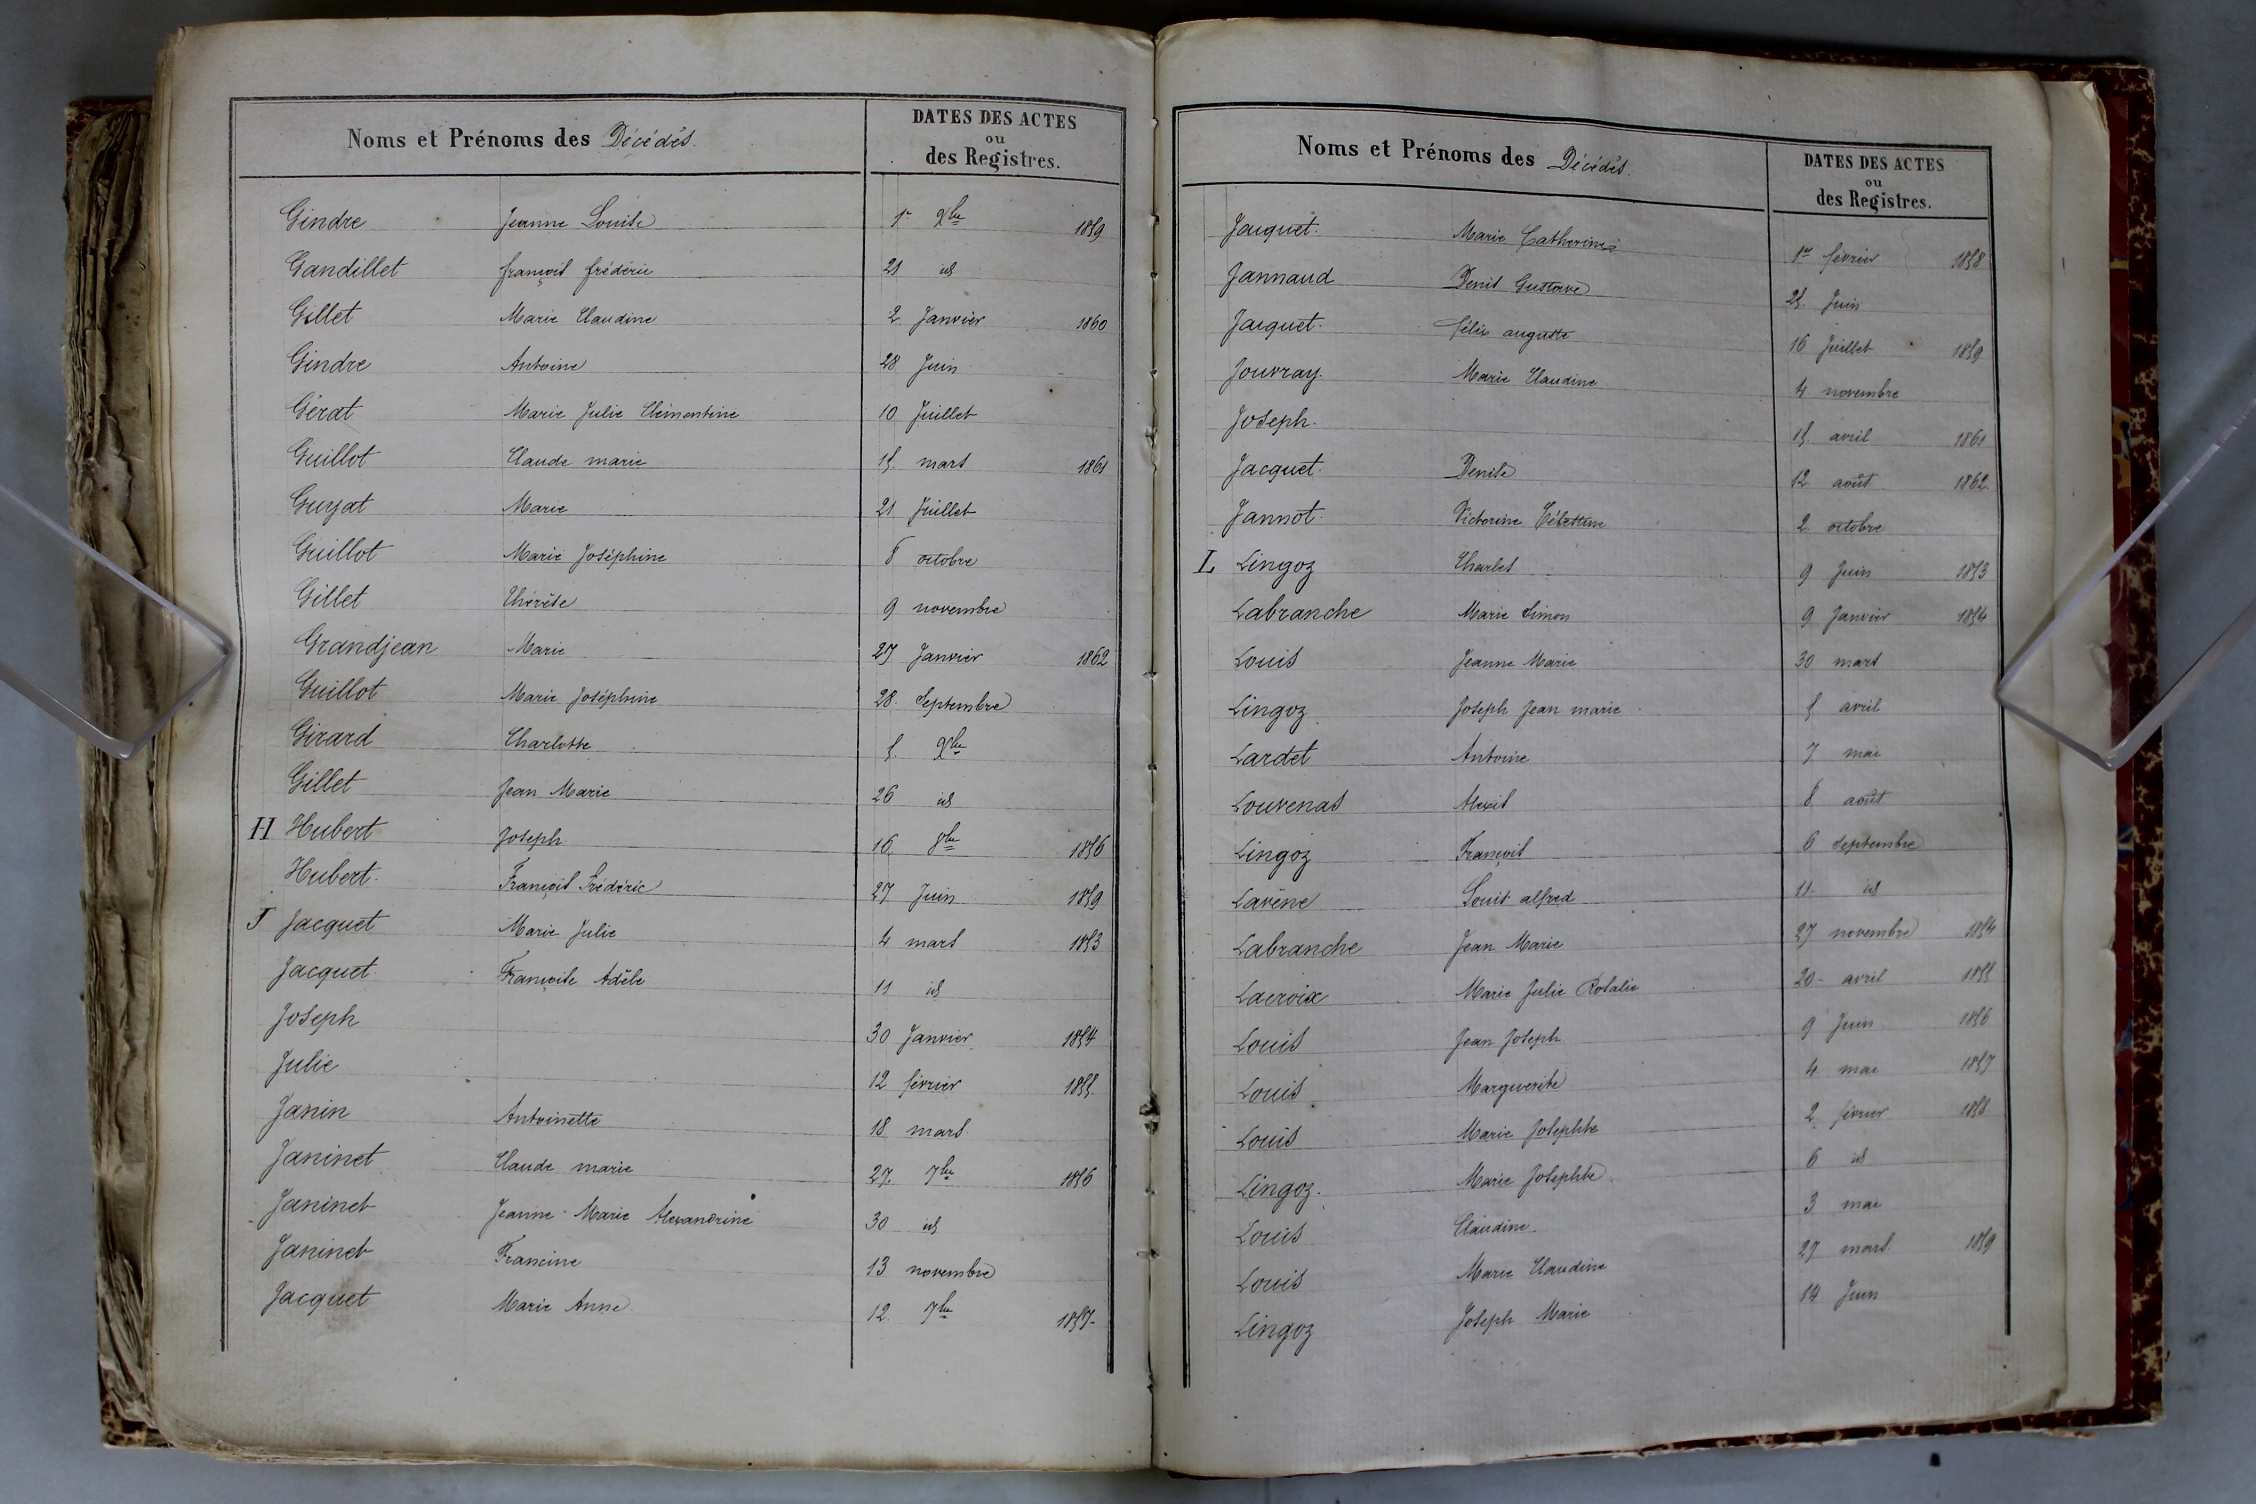 Noms et Prénoms des Décédés.
DATES DES ACTES
ou
des Registres.
Gindre Jeanne Louise 1er Xbre 1859
Gandillet françois frédéric 21 id
Gillet Marie Claudine 2 Janvier 1860
Gindre Antoine 28 Juin
Gérat Marie Julie Clémentine 10 Juillet
Guillot Claude marie 15 mars 1861
Guyat Marie 21 Juillet
Guillot Marie Joséphine 8 octobre
Gillet Thérèse 9 novembre
Grandjean Marie 27 Janvier 1862
Guillot Marie Joséphine 28 Septembre
Girard Charlotte 5 Xbre
Gillet Jean Marie 26 id
H Hubert Joseph 16 8bre 1856
Hubert François Frédéric 27 Juin 1859
J Jacquet Marie Julie 4 mars 1853
Jacquet Françoise Adèle 11 id
Joseph 30 Janvier 1854
Julie 12 février 1855
Janin Antoinette 18 mars
Janinet Claude marie 27 7bre 1856
Janinet Jeanne Marie Alexandrine 30 id
Janinet Francine 13 novembre
Jacquet Marie Anne 12 7bre 1857
Noms et Prénoms des Décédés.
DATES DES ACTES
ou
des Registres.
Jacquet Marie Catherine 1er février 1858
Jannaud Denis Gustave 25 Juin
Jacquet félix auguste 16 Juillet 1859
Jouvray Marie Claudine 4 novembre
Joseph 15 avril 1861
Jacquet Denise 12 août 1862
Jannot Victorine Célestine 2 octobre
L Lingoz Charles 9 Juin 1853
Labranche Marie Simon 9 Janvier 1854
Louis Jeanne Marie 30 mars
Lingoz Joseph Jean marie 5 avril
Lardet Antoine 7 mai
Louvenas Alexis 8 août
Lingoz François 6 Septembre
Lavène Louis alfred 11 id
Labranche Jean Marie 27 novembre 1854
Lacroix Marie Julie Rosalie 20 avril 1855
Louis Jean Joseph 9 Juin 1856
Louis Marguerite 4 mai 1857
Louis Marie Josephte 2 février 1858
Lingoz Marie Josephte 6 id
Louis Claudine 3 mai
Louis Marie Claudine 27 mars 1859
Lingoz Joseph Marie 14 Juin